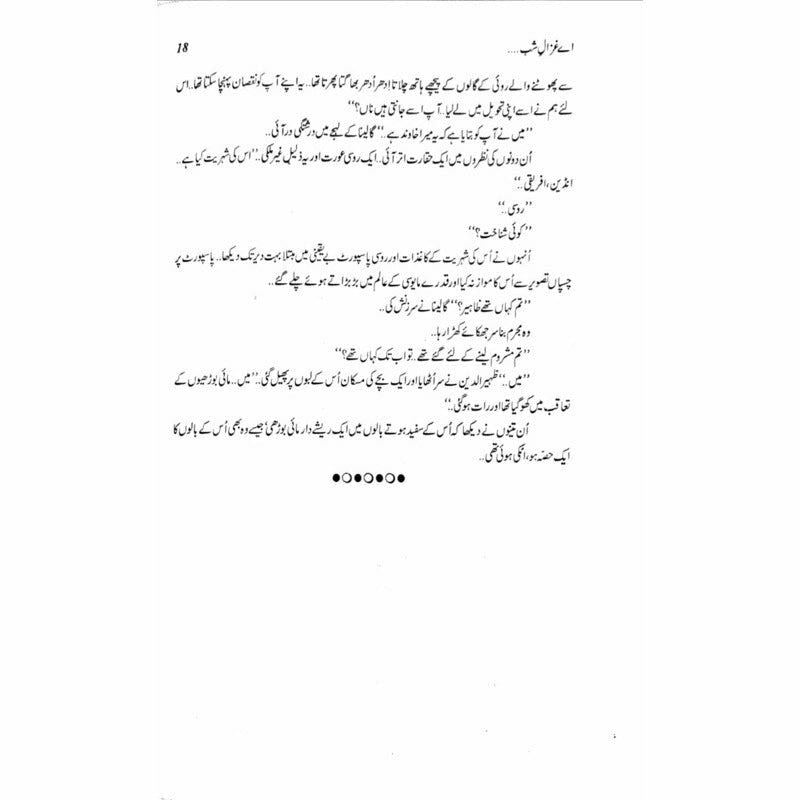 اے غزالِ شب .... 18
سے پھوٹنے والے روئی کے گالوں کے پیچھے ہاتھ چلاتا اِدھر اُدھر بھاگتا پھرتا تھا.. یہ اپنے آپ کو نقصان پہنچا سکتا تھا.. اس
لئے ہم نے اسے اپنی تحویل میں لے لیا.. آپ اسے جانتی ہیں ناں؟‘‘
’’میں نے آپ کو بتایا ہے کہ یہ میرا خاوند ہے..‘‘ گالینا کے لہجے میں درشتگی در آئی..
اُن دونوں کی نظروں میں ایک حقارت اتر آئی.. ایک روسی عورت اور یہ ذلیل غیر ملکی.. ’’اس کی شہریت کیا ہے..
انڈین، افریقی..‘‘
’’روسی..‘‘
’’کوئی شناخت؟‘‘
اُنہوں نے اُس کی شہریت کے کاغذات اور روسی پاسپورٹ بے یقینی میں مبتلا بہت دیر تک دیکھا.. پاسپورٹ پر
چسپاں تصویر سے اُس کا موازنہ کیا اور قدرے مایوسی کے عالم میں بڑبڑاتے ہوئے چلے گئے..
’’تم کہاں تھے ظاہیر؟‘‘ گالینا نے سرزنش کی..
وہ مجرم بنا سر جھکائے کھڑا رہا..
’’تم مشروم لینے کے لئے گئے تھے.. تو اب تک کہاں تھے؟‘‘
’’میں..‘‘ ظہیر الدین نے سر اُٹھایا اور ایک بچے کی مسکان اُس کے لبوں پر پھیل گئی.. ’’میں.. مائی بوڑھیوں کے
تعاقب میں کھو گیا تھا اور رات ہو گئی..‘‘
اُن تینوں نے دیکھا کہ اُس کے سفید ہوتے بالوں میں ایک ریشے دار مائی بوڑھی جیسے وہ بھی اُس کے بالوں کا
ایک حصّہ ہو، اٹکی ہوئی تھی..